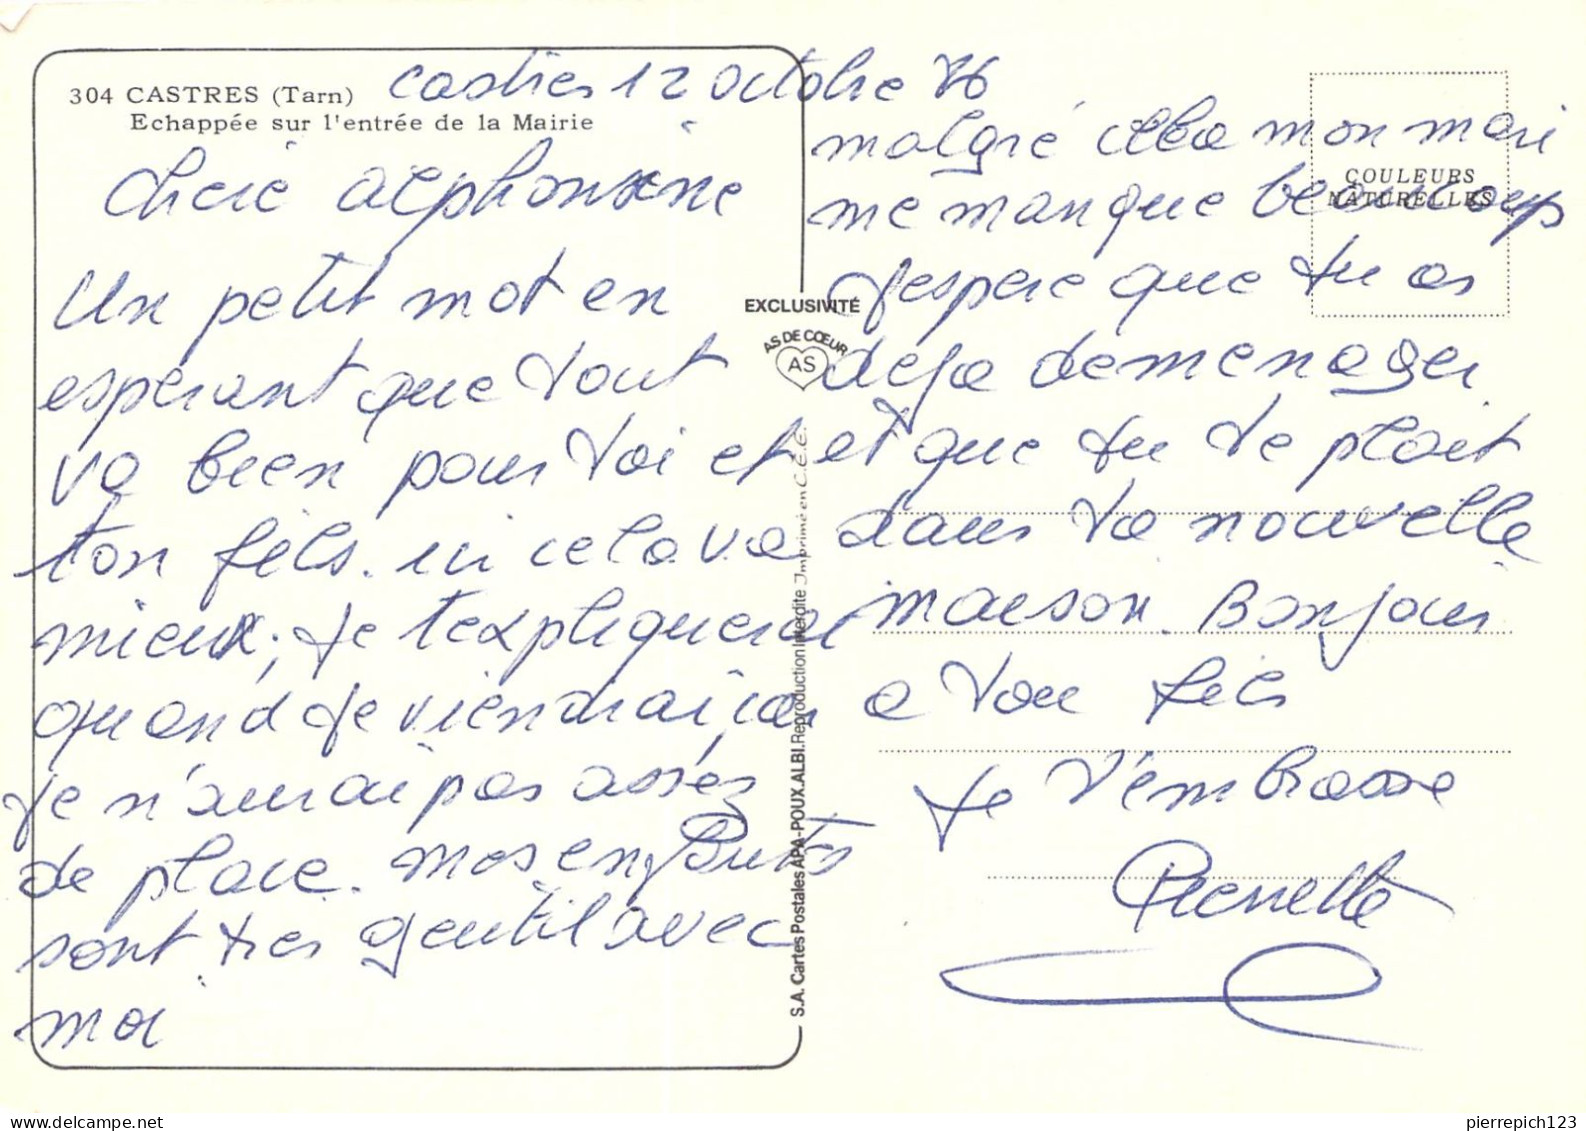 304 CASTRES (Tarn)
Echappée sur l'entrée de la Mairie
Castres 12 octobre 76
Cherie alphonsine
Un petit mot en
esperant que tout
va bien pour toi et
ton fils. ici cela va
mieux; je t'expliquerai
quand je viendrai, car
je n'aurai pas assez
de place. mes enfants
sont tres gentil avec
moi
malgré cela mon mari
me manque beaucoup
j'espere que tu as
deja demenager
et que tu te plait
dans ta nouvelle
maison. Bonjour
a ton fils
Je t'embrasse
Pierrette
COULEURS
NATURELLES
EXCLUSIVITÉ
AS DE CŒUR
AS
S.A. Cartes Postales APA-POUX.ALBI. Reproduction Interdite Imprimé en C.E.E.
delcampe.net
pierrepich123